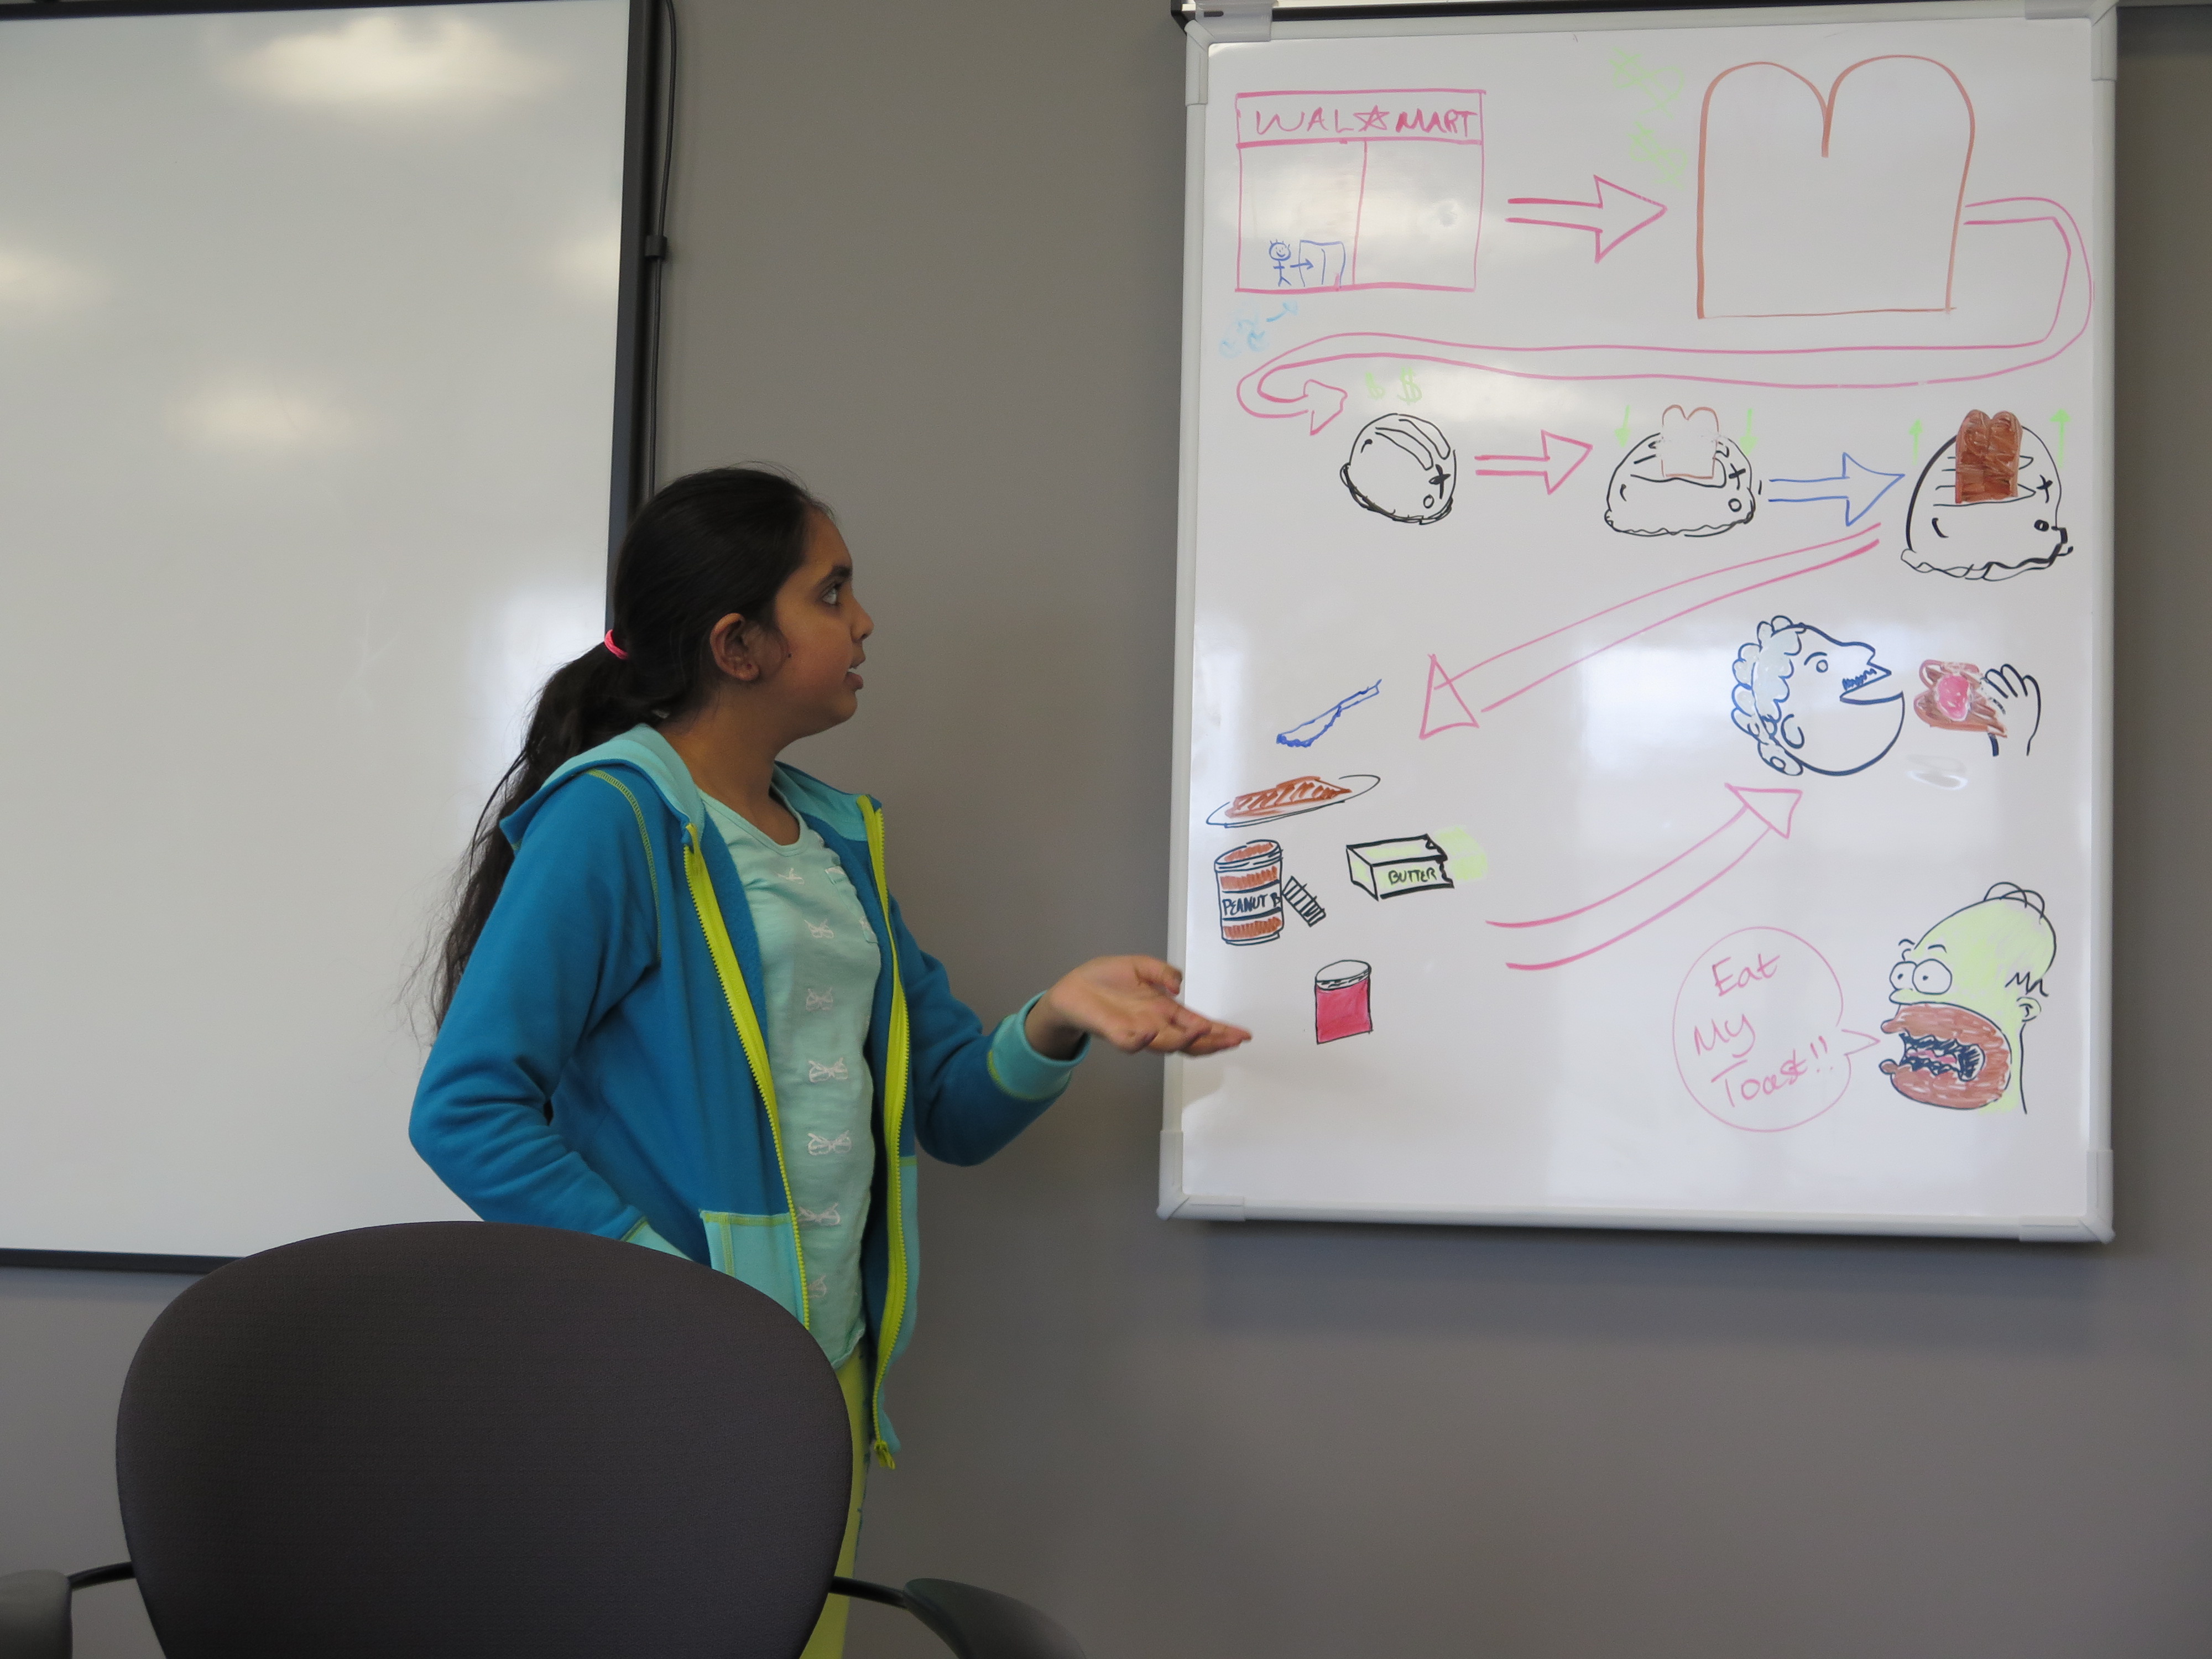 WAL☆MART
$ $
PEANUT B
BUTTER
Eat
My
Toast!!